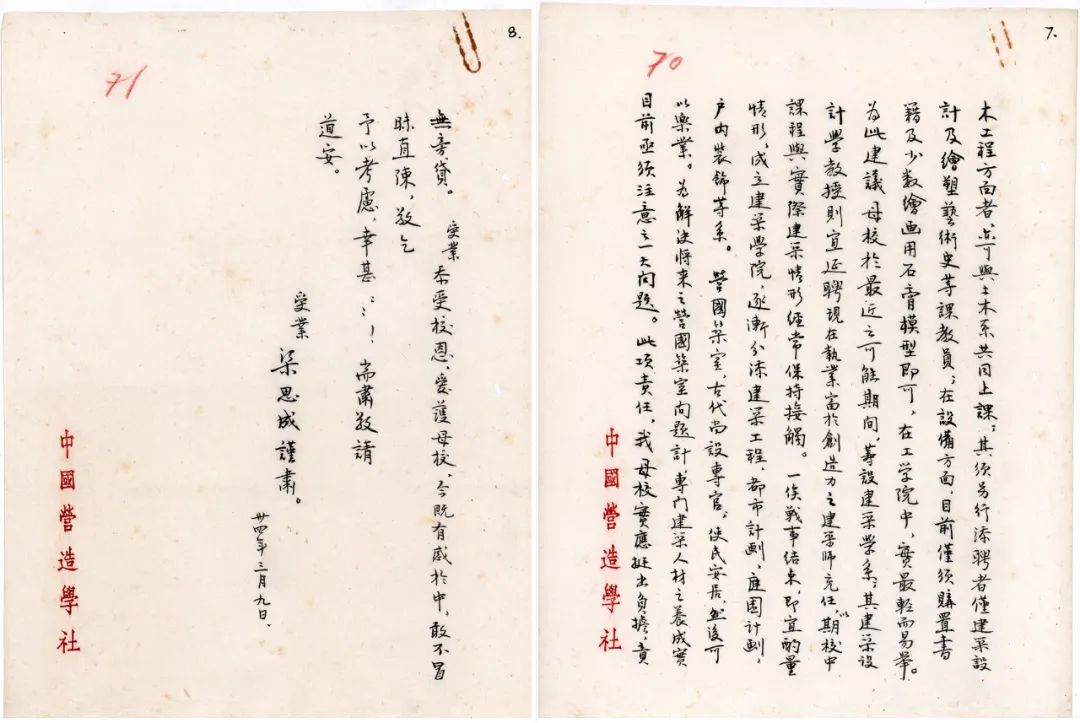 7.
70
木工程方面者亦可與土木系共同上課；其須另行添聘者僅建築設
計及繪塑藝術史等課教員；在設備方面，目前僅須購置書
籍及少數繪画用石膏模型即可，在工学院中，實最輕而易舉。
為此建議母校於最近之可能期間，筹設建築学系；其建築設
計學教授則宜延聘現在執業富於創造力之建築師充任，以期校中
課程與實際建築情形經常保持接觸。一俟戰事结束，即宜酌量
情形，成立建築学院，逐漸分添建築工程，都市計劃，庭園計劃，
户内裝飾等系。營國築室，古代尚設專官，使民安居，然後可
以樂業。為解决將來之營國築室问題計，專门建築人材之養成實
目前亟須注意之一大问題。此項責任，我母校實應挺出負擔，責
中國營造學社
8.
71
無旁貸。受業忝受校恩，爱護母校，今既有感於中，敢不冒
昧直陳，敬乞
予以考慮，幸甚：：！耑肅敬請
道安。
受業
梁思成謹肅。
卅四年三月九日、
中國營造學社